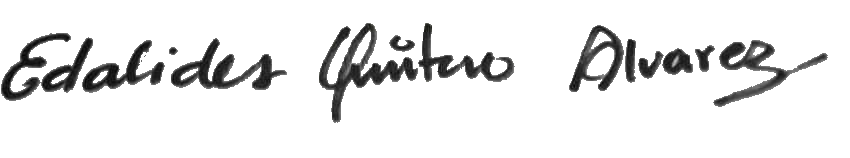 Edalides Quintero Alvarez